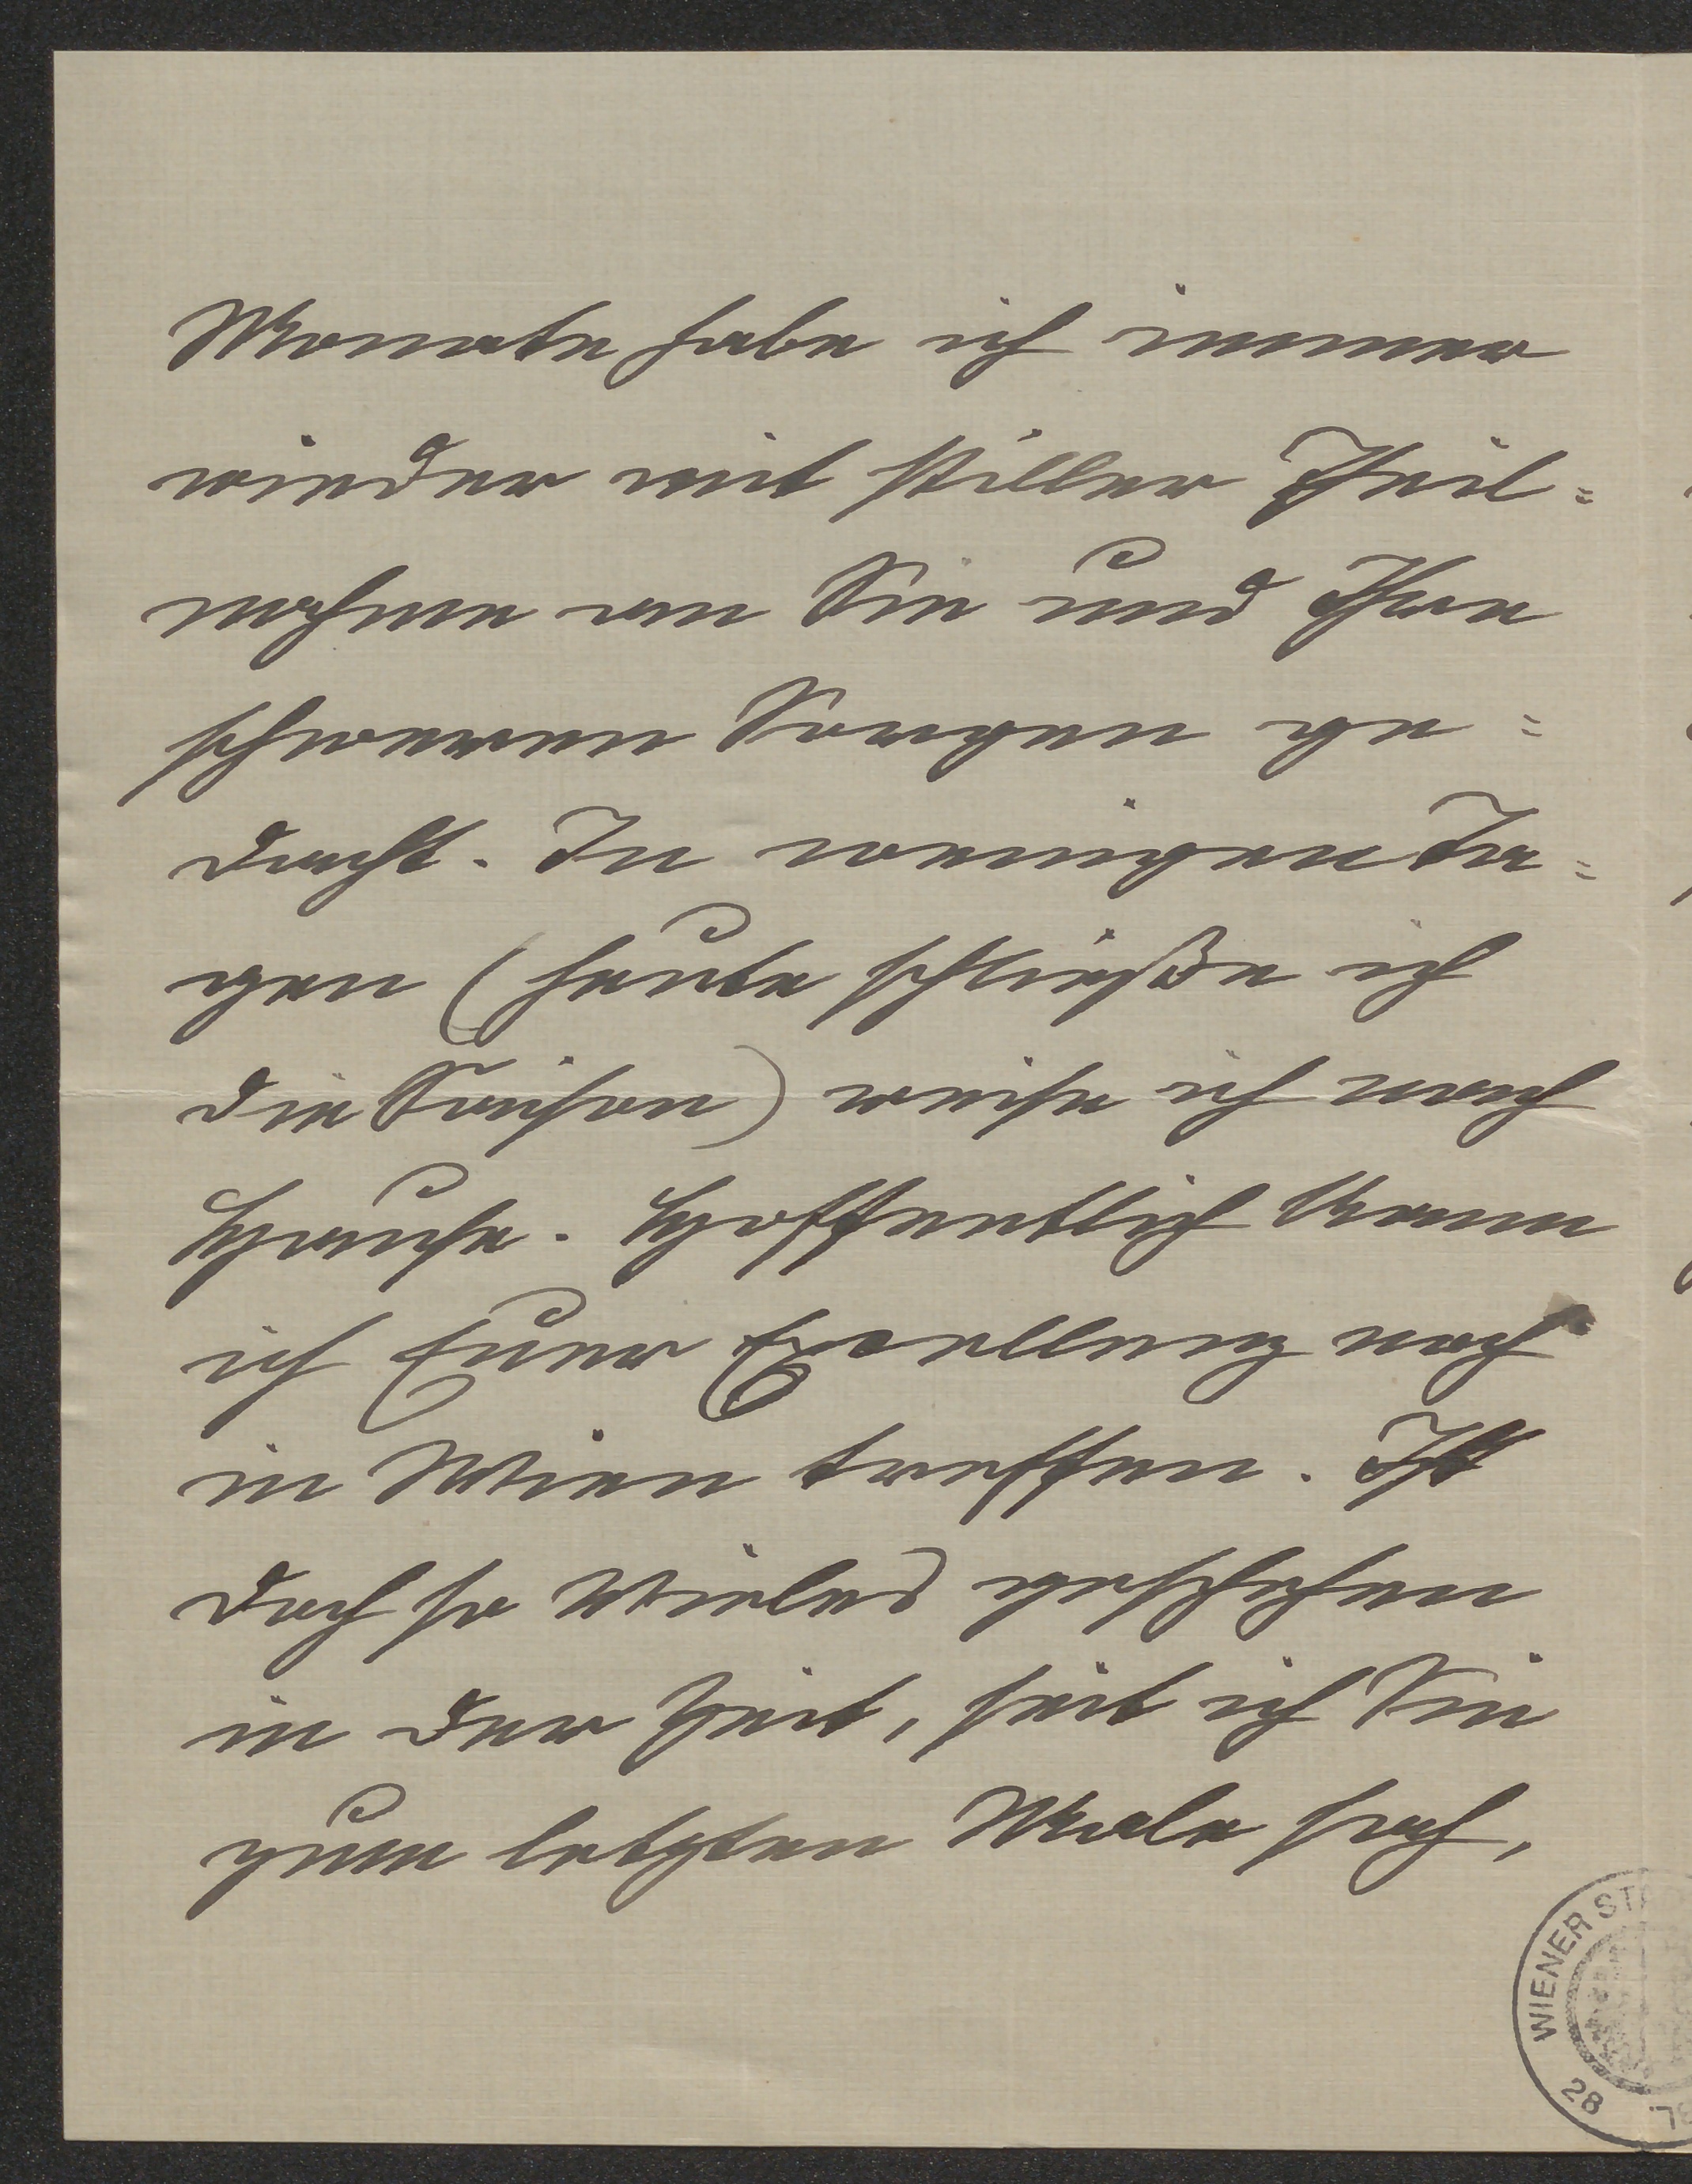 Monate habe ich immer
wieder mit stiller Theil=
nahme an Sie und Ihre
schweren Sorgen ge=
dacht. In wenigen Ta=
gen (heute schließe ich
die Saison) reise ich nach
Hause. Hoffentlich kann
ich Euer Excellenz noch
in Wien treffen. Ist
doch so Vieles geschehen
in der Zeit, seit ich Sie
zum letzten Male sah,
WIENER
28